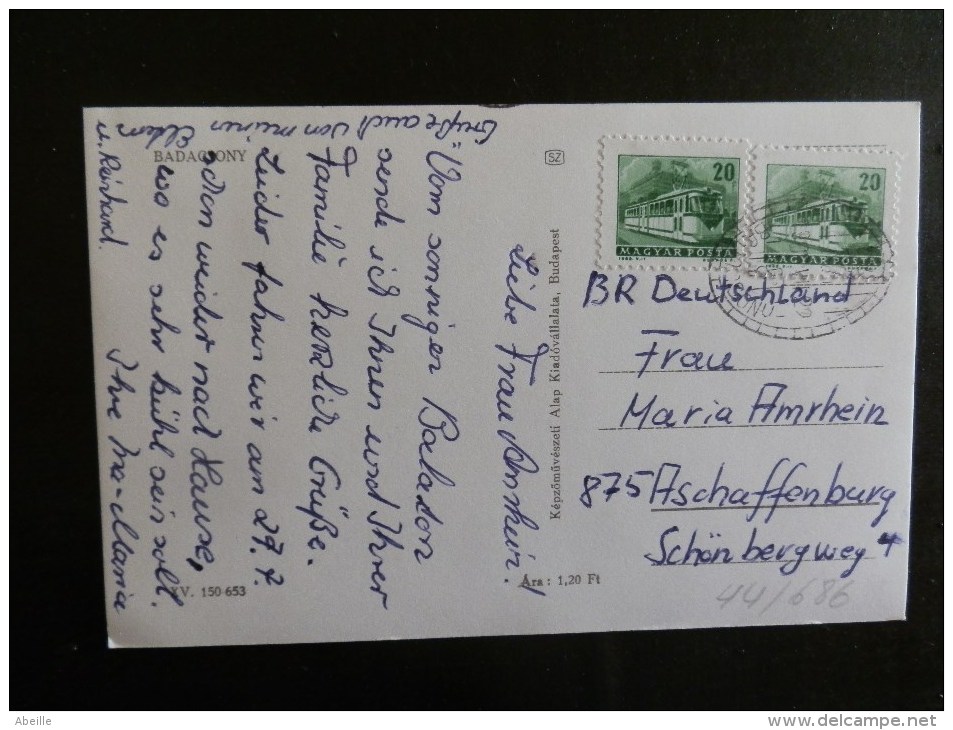 Liebe Frau Amrhein!
Vom sonnigen Balaton
sende ich Ihnen und Ihrer
Familie herzliche Grüße.
Leider fahren wir am 27.7.
schon wieder nach Hause,
wo es sehr kühl sein soll.
Ihre Ina-Maria
Grüße auch von meinen Eltern
u. Reinhard.
BADACSONY
XV. 150-653
SZ
Képzőművészeti Alap Kiadóvállalata, Budapest
Ára: 1,20 Ft
20
MAGYAR POSTA
20
MAGYAR POSTA
BR Deutschland
Frau
Maria Amrhein
875 Aschaffenburg
Schönbergweg 4
44/686
Abeille
www.delcampe.net